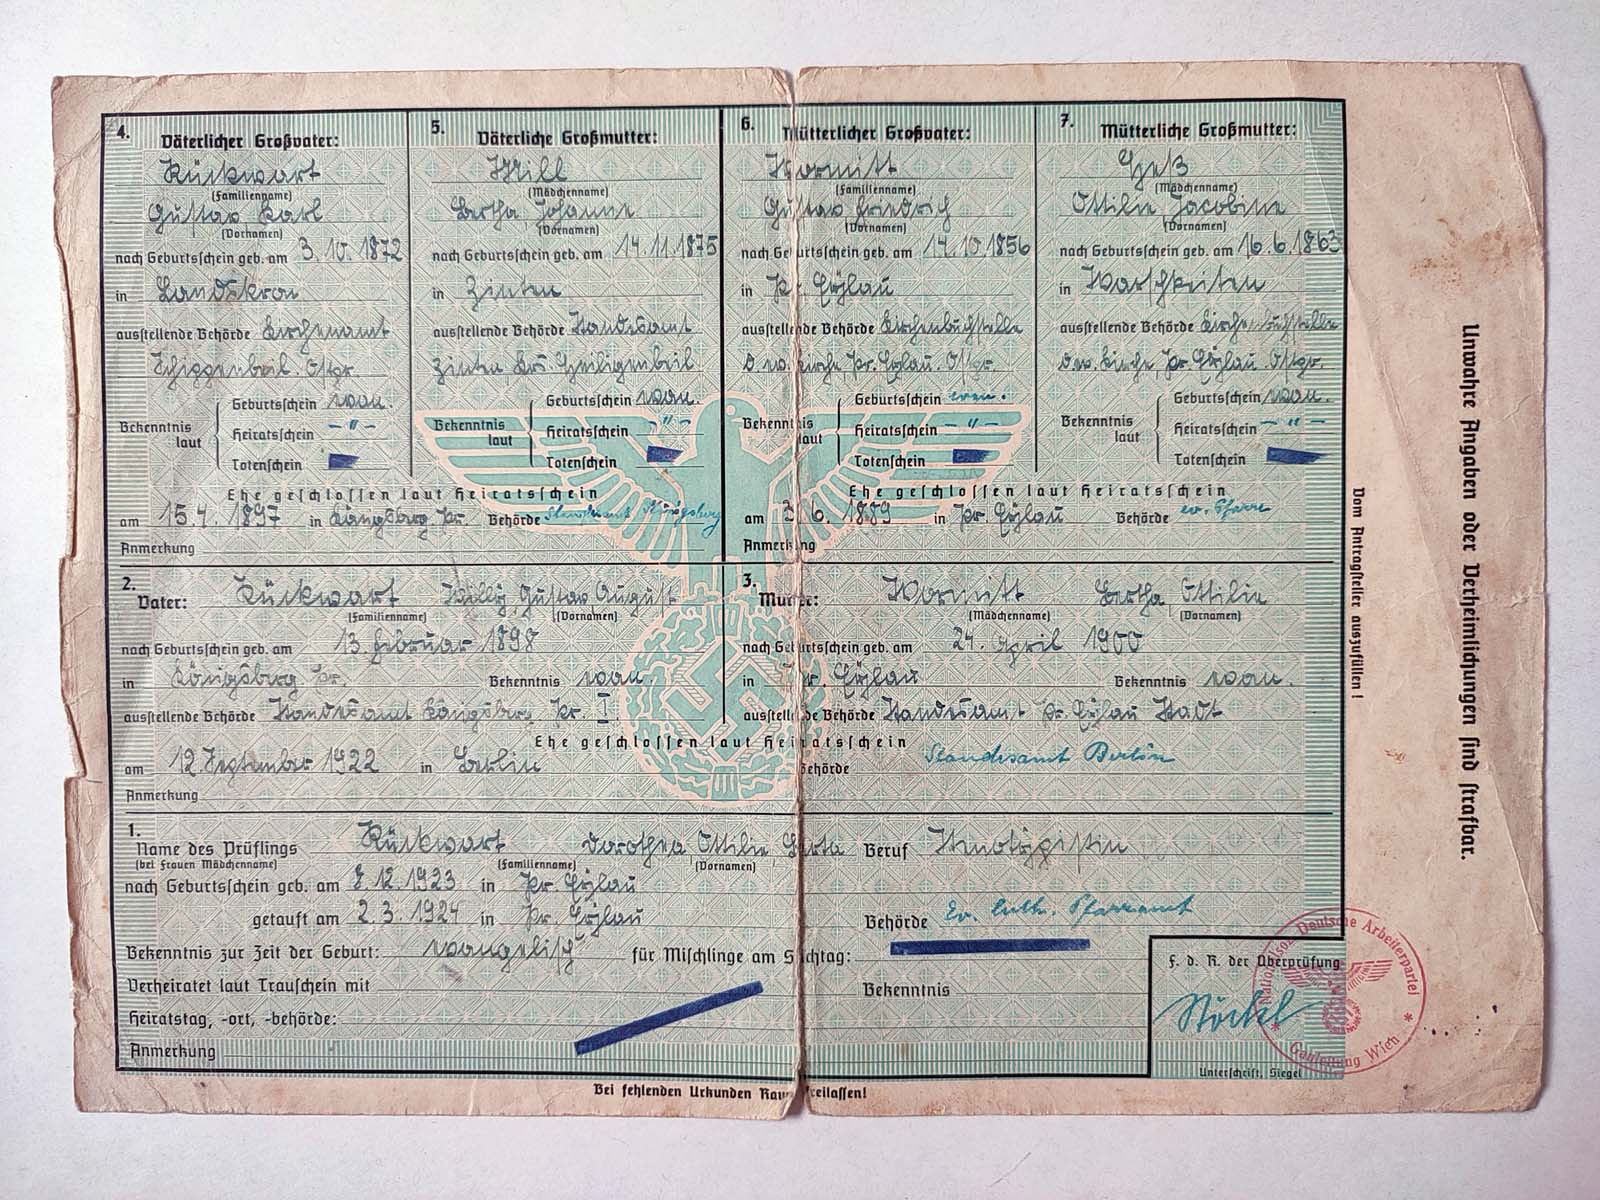 4. Väterlicher Großvater:
Rückwart
(Familienname)
Gustav Karl
(Vornamen)
nach Geburtsschein geb. am 3.10.1872
in Landskron
ausstellende Behörde Kirchenamt
Schippenbeil. Ostpr.
Bekenntnis laut
Geburtsschein evan.
Heiratsschein -"-
Totenschein
5. Väterliche Großmutter:
Will
(Mädchenname)
Bertha Johanne
(Vornamen)
nach Geburtsschein geb. am 14.11.1875
in Zinten
ausstellende Behörde Standesamt
Zinten, Krs. Heiligenbeil
Bekenntnis laut
Geburtsschein evan.
Heiratsschein -"-
Totenschein
Ehe geschlossen laut Heiratsschein
am 15.4.1897 in Königsberg Pr. Behörde Standesamt Königsberg
Anmerkung
6. Mütterlicher Großvater:
Wormitt
(Familienname)
Gustav Friedrich
(Vornamen)
nach Geburtsschein geb. am 14.10.1856
in Pr. Eylau
ausstellende Behörde Kirchenbuchstelle
Kirche, Pr. Eylau. Ostpr.
Bekenntnis laut
Geburtsschein evan.
Heiratsschein -"-
Totenschein
7. Mütterliche Großmutter:
Heß
(Mädchenname)
Ottilie Jacobine
(Vornamen)
nach Geburtsschein geb. am 16.6.1863
in Warschkeiten
ausstellende Behörde Kirchenbuchstelle
Kirche, Pr. Eylau Ostpr.
Bekenntnis laut
Geburtsschein evan.
Heiratsschein -"-
Totenschein
Ehe geschlossen laut Heiratsschein
am 3.6.1889 in Pr. Eylau Behörde ev. Pfarre
Anmerkung
2.
Vater: Rückwart Willy, Gustav, August
(Familienname) (Vornamen)
nach Geburtsschein geb. am 13. Februar 1898
in Königsberg Pr. Bekenntnis evan.
ausstellende Behörde Standesamt Königsberg Pr. I
3.
Mutter: Wormitt Bertha Ottilie
(Mädchenname) (Vornamen)
nach Geburtsschein geb. am 24. April 1900
in Pr. Eylau Bekenntnis evan.
ausstellende Behörde Standesamt Pr. Eylau Stadt
Ehe geschlossen laut Heiratsschein
am 12. September 1922 in Berlin Behörde Standesamt Berlin
Anmerkung
1.
Name des Prüflings Rückwart Dorothea, Ottilie, Berta Beruf Stenotypistin
(bei Frauen Mädchenname) (Familienname) (Vornamen)
nach Geburtsschein geb. am 8.12.1923 in Pr. Eylau
getauft am 2.3.1924 in Pr. Eylau Behörde Ev. luth. Pfarramt
Bekenntnis zur Zeit der Geburt: evangelisch für Mischlinge am Stichtag:
Verheiratet laut Trauschein mit Bekenntnis
Heiratstag, -ort, -behörde:
Anmerkung
F. d. R. der Überprüfung
Stöckl
Unterschrift, Siegel
Nationalsoz. Deutsche Arbeiterpartei
* Gauleitung Wien *
Bei fehlenden Urkunden Raum freilassen!
Vom Antragsteller auszufüllen!
Unwahre Angaben oder Verheimlichungen sind strafbar.